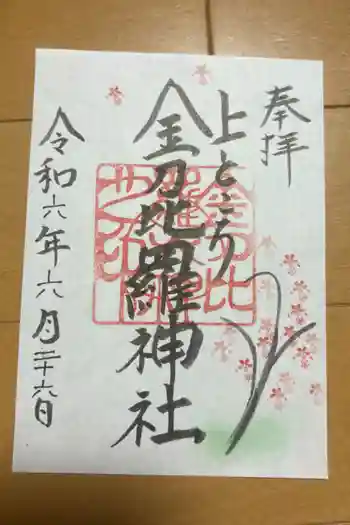 奉拝
上ところ
金刀比羅神社
令和六年六月二十六日